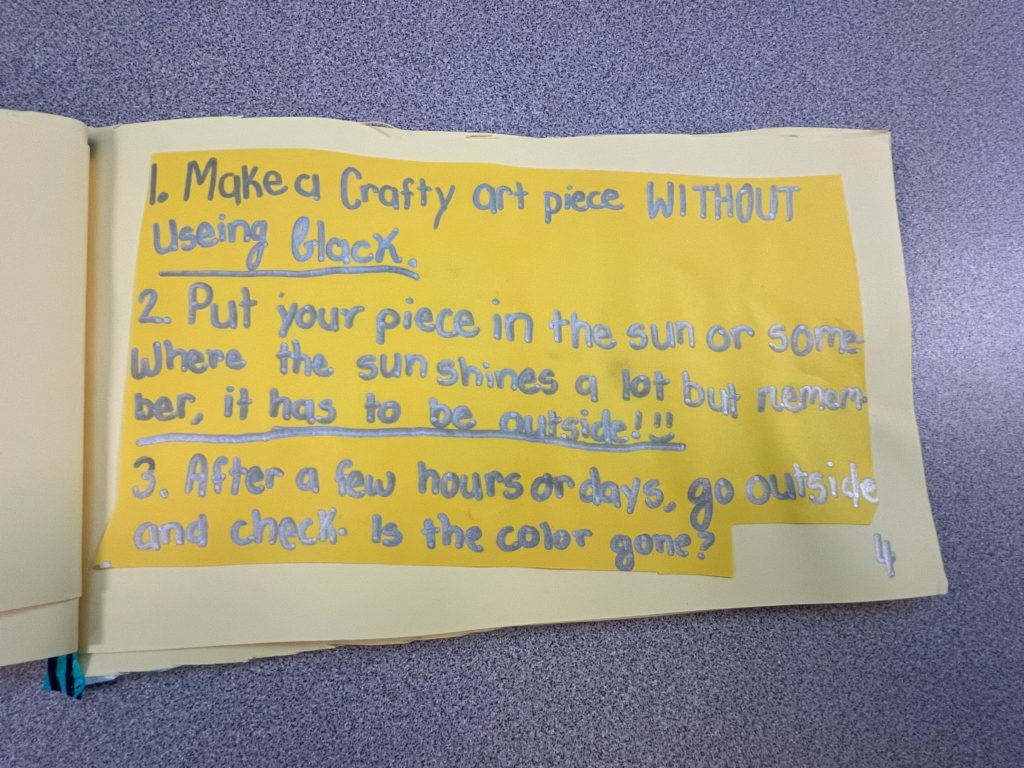 1. Make a Crafty art piece WITHOUT
Useing black.
2. Put your piece in the sun or some-
where the sun shines a lot but remem-
ber, it has to be outside! !!
3. After a few hours or days, go outside
and check. Is the color gone?
4